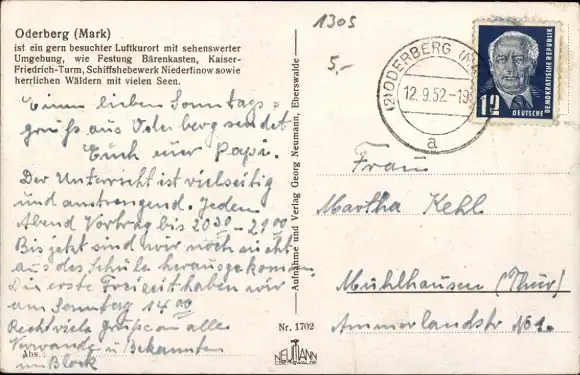 Oderberg (Mark)
ist ein gern besuchter Luftkurort mit sehenswerter
Umgebung, wie Festung Bärenkasten, Kaiser-
Friedrich-Turm, Schiffshebewerk Niederfinow sowie
herrlichen Wäldern mit vielen Seen.
Einen lieben Sonntags-
gruß aus Oderberg sendet
Euch euer Papi.
Der Unterricht ist vielseitig
und anstrengend. Jeden
Abend Vortrag bis 20 30 - 21 00
Bis jetzt sind wir noch nicht
aus der Schule herausgekom.
Die erste Freizeit haben wir
am Sonntag 14 00
Recht viele Grüße an alle
Verwandte u Bekannten
im Block
Abs.:
Aufnahme und Verlag Georg Neumann, Eberswalde
Nr. 1702
NEUMANN
EBERSWALDE
1305
5,-
(2) ODERBERG (M
12.9.52.-19
a
DEUTSCHE
DEMOKRATISCHE REPUBLIK
12
Frau
Martha Kehl
Mühlhausen (Thür)
Ammerlandstr No